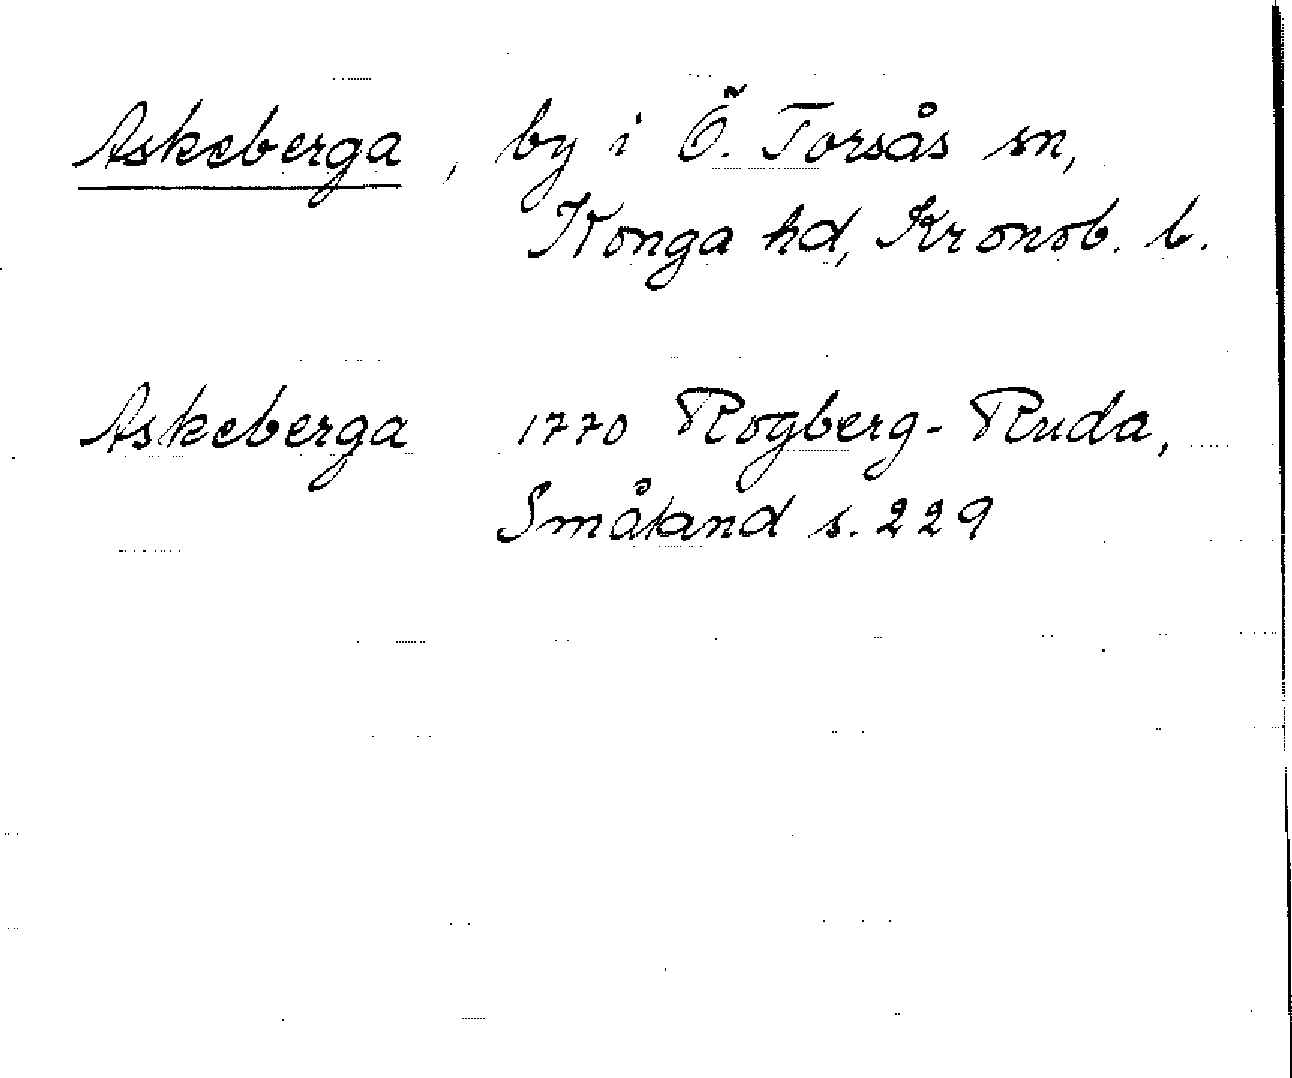 Askeberga, by i Ö. Torsås sn,
Konga hd, Kronob. l.
Askeberga 1770 Rogberg-Ruda,
Småland s. 229